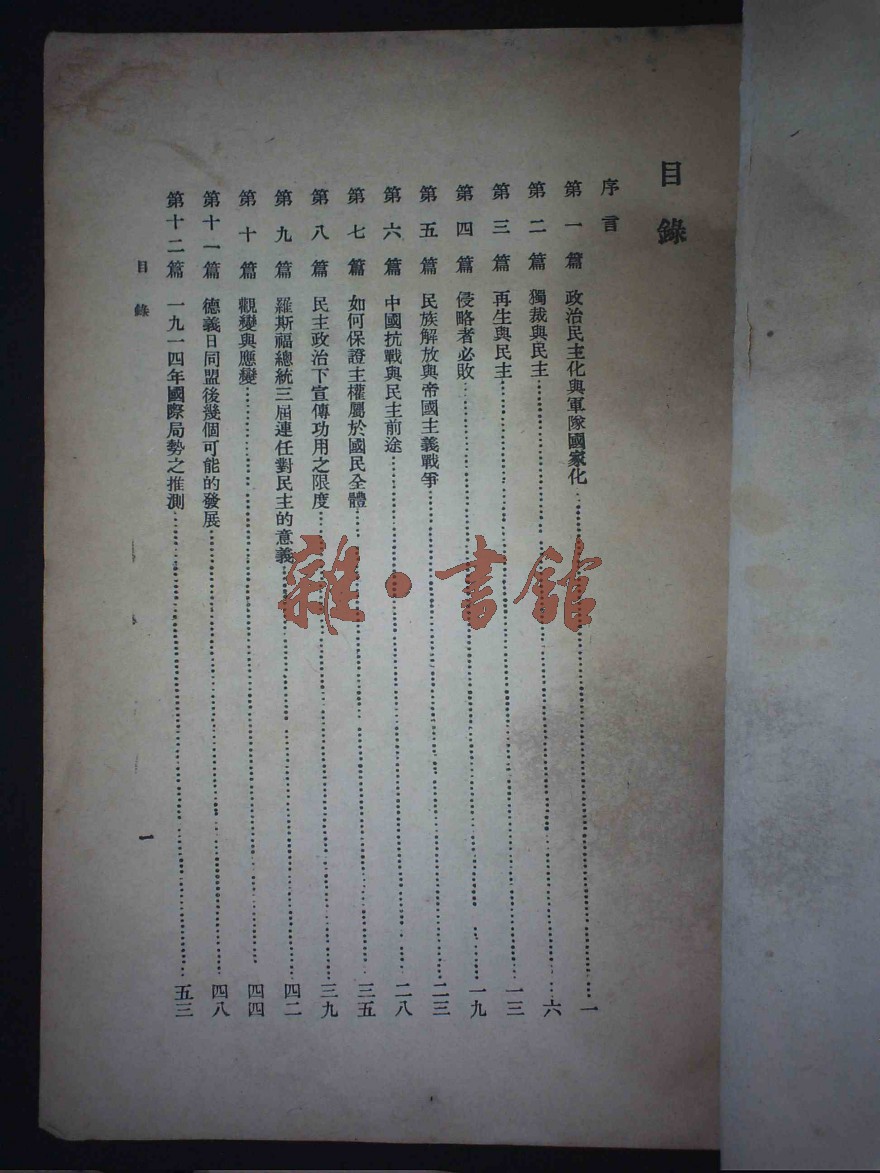 目錄
序言
第一篇 政治民主化與軍隊國家化……一
第二篇 獨裁與民主……六
第三篇 再生與民主……一三
第四篇 侵略者必敗……一九
第五篇 民族解放與帝國主義戰爭……二三
第六篇 中國抗戰與民主前途……二八
第七篇 如何保證主權屬於國民全體……三五
第八篇 民主政治下宣傳功用之限度……三九
第九篇 羅斯福總統三屆連任對民主的意義……四二
第十篇 觀變與應變……四四
第十一篇 德義日同盟後幾個可能的發展……四八
第十二篇 一九一四年國際局勢之推測……五三
目錄
一
雜·書館